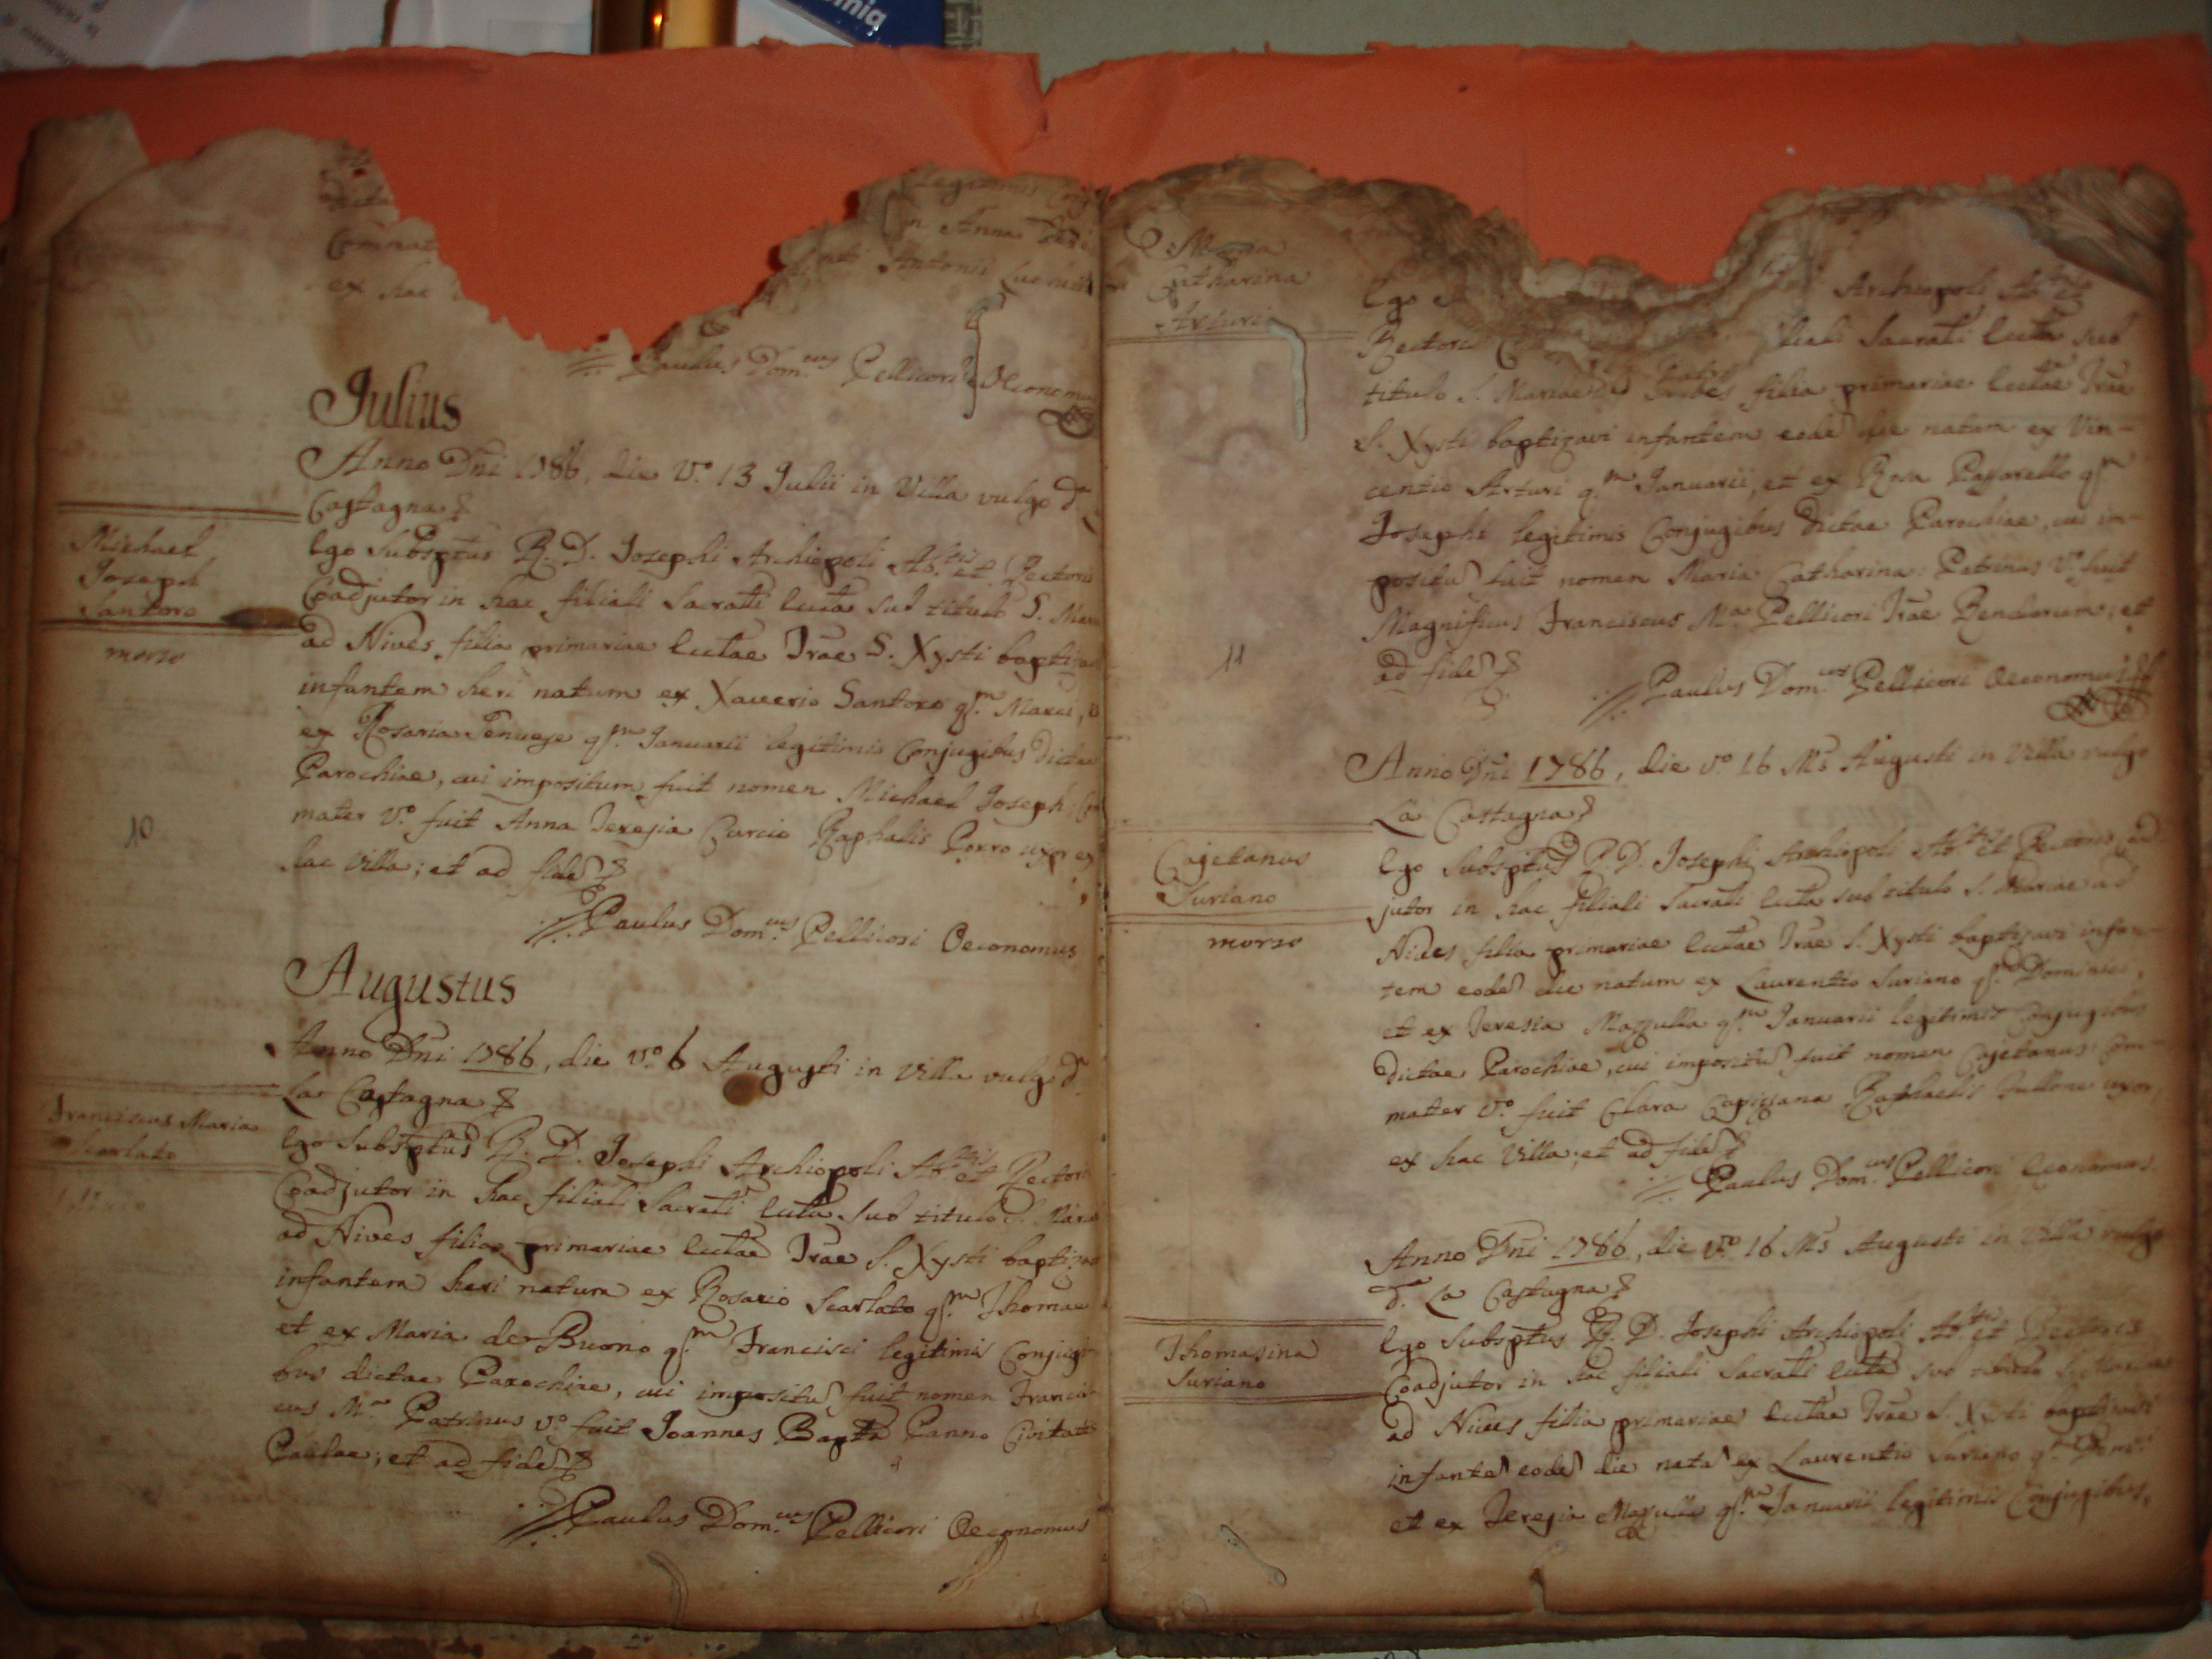 Legitimis
Anna
Antonii
ex hac
Paulus Dom.cus Pellicori Oeconomus
Julius
Anno Dni 1786, die v.o 13 Julii in Villa vulgo d.
Castagna
Michael
Joseph
Santoro
morto
10
Ego Subsptus R. D. Josephi Archiopoli Ab.tis et Rectoris
Coadjutor in hac filiali Sacrati Eccta sub titulo S. Mariae
ad Nives filia primariae Ecctae Trae S. Xysti baptizavi
infantem heri natum ex Xaverio Santoro q.m Marci,
ex Rosaria Penuese q.m Januarii legitimis Conjugibus dictae
Parochiae, cui impositum fuit nomen Michael Joseph; Com
mater v.o fuit Anna Teresia Curcio Raphalis Porro uxor ex
hac Villa; et ad fide
Paulus Dom.cus Pellicori Oeconomus
Augustus
Anno Dni 1786, die v.o 6 Augusti in Villa vulg d.
La Castagna
Franciscus Maria
Scarlato
Ego Subsptus R. D. Josephi Archiopoli Ab.tis et Rectoris
Coadjutor in hac filiali Sacrati Eccta sub titulo S. Mariae
ad Nives filia primariae Ecctae Trae S. Xysti baptizavi
infantem heri natum ex Rosario Scarlato q.m Thomae
et ex Maria de Buono q.m Francisci legitimis Conjugi
bus dictae Parochiae, cui impositu fuit nomen Francis
cus M.a Patrinus v.o fuit Joannes Bapta Panno Civitatis
Paulae; et ad fide
Paulus Dom.cus Pellicori Oeconomus
Maria
Catharina
Arturi
11
Ego Archiopoli Ab.tis
Rectoris liali Sacrati Eccta sub
titulo S. Mariae filia primariae Ecctae Trae
S. Xysti baptizavi infantem eode die natam ex Vin-
centio Arturi q.m Januarii, et ex Rosa Passarello q.m
Josephi legitimis Conjugibus dictae Parochiae, cui im-
positu fuit nomen Maria Catharina: Patrinus v.o fuit
Magnificus Franciscus M.a Pellicori Trae Bendarum; et
ad fide
Paulus Dom.cus Pellicori Oeconomus
Anno Dni 1786, die v.o 16 M.s Augusti in Villa vulgo
La Castagna
Cajetanus
Suriano
morto
Ego Subsptus R. D. Josephi Archiopoli Ab.tis et Rectoris Coad
jutor in hac filiali Sacrati Eccta sub titulo S. Mariae ad
Nives filia primariae Ecctae Trae S. Xysti baptizavi infan-
tem eode die natum ex Laurentio Suriano q.m Dominici,
et ex Teresia Mazzulla q.m Januarii legitimis Conjugibus
dictae Parochiae, cui impositu fuit nomen Cajetanus: Com-
mater v.o fuit Clara Raphaelis Tullone uxor
ex hac Villa; et ad fide
Paulus Dom.cus Pellicori Oeconomus
Anno Dni 1786, die v.o 16 M.s Augusti in Villa vulgo
d. La Castagna
Thomasina
Suriano
Ego Subsptus R. D. Josephi Archiopoli Ab.tis et Rectoris
Coadjutor in hac filiali Sacrati Eccta sub titulo S. Mariae
ad Nives filia primariae Ecctae Trae S. Xysti baptizavi
infante eode die nata ex Laurentio Suriano q.m Dom.ci
et ex Teresia Mazzulla q.m Januarii legitimis Conjugibus,